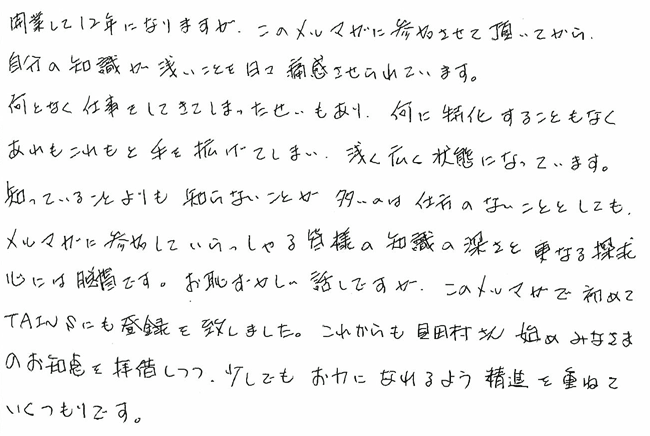 開業して12年になりますが、このメルマガに参加させて頂いてから、
自分の知識が浅いことを日々痛感させられています。
何となく仕事をしてきてしまったせいもあり、何に特化することもなく
あれもこれもと手を拡げてしまい、浅く広く状態になっています。
知っていることよりも知らないことが多いのは仕方のないこととしても、
メルマガに参加していらっしゃる皆様の知識の深さと更なる探求
心には脱帽です。お恥ずかしい話しですが、このメルマガで初めて
TAINSにも登録を致しました。これからも見田村さん始めみなさま
のお知恵を拝借しつつ、少しでもお力になれるよう精進を重ねて
いくつもりです。